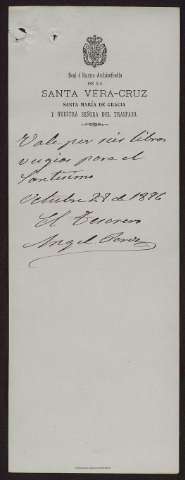 Real é Ilustre Archicofradía
DE LA
SANTA VERA-CRUZ
SANTA MARÍA DE GRACIA
Y NUESTRA SEÑORA DEL TRASPASO.
Vale por seis libras
vergia para el
Santisimo
Octubre 28 de 1886
El Tesorero
Angel